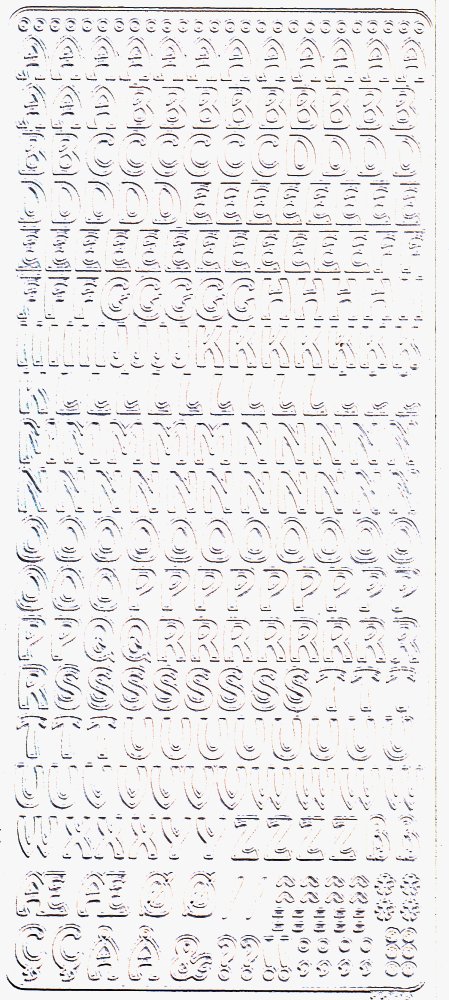 AAAAAAAAAAAA
AAABBBBBBBBB
BBCCCCCCDDDD
DDDDDEEEEEEEE
EEEEEEEEEEEEFF
FFFGGGGGHHHHH
IIIIIIJJJJKKKKKKK
KLLLLLLLLLLLL
MMMMMMNNNNNN
NNNNNNNNNNNN
OOOOOOOOOOO
OOOPPPPPPPPP
PPQQRRRRRRRR
RSSSSSSSSTTT
TTTUUUUUUUU
UUVVVVVWWWWW
WXXXYYZZZZßß
ÆÆØØ//
ÇÇÅÅ&??!!